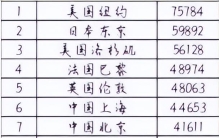 1 美国纽约 75784
2 日本东京 59892
3 美国洛杉矶 56128
4 法国巴黎 48974
5 英国伦敦 48063
6 中国上海 44653
7 中国北京 41611